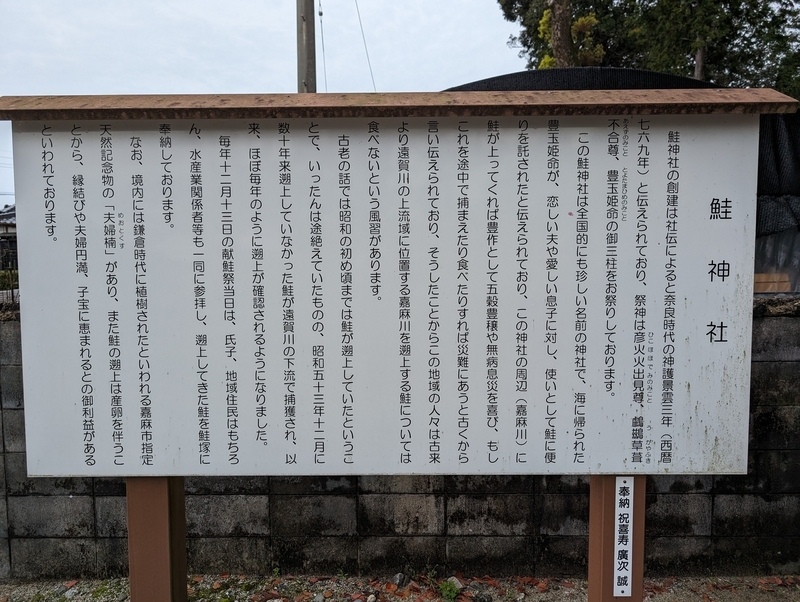 鮭神社
鮭神社の創建は社伝によると奈良時代の神護景雲三年（西暦
七六九年）と伝えられており、祭神は彦火火出見尊、鸕鷀草葺
ひこほほでみのみこと
うがやふき
不合尊、豊玉姫命の御三柱をお祭りしております。
あえずのみこと
とよたまひめのみこと
この鮭神社は全国的にも珍しい名前の神社で、海に帰られた
豊玉姫命が、恋しい夫や愛しい息子に対し、使いとして鮭に便
りを託されたと伝えられており、この神社の周辺（嘉麻川）に
鮭が上ってくれば豊作として五穀豊穣や無病息災を喜び、もし
これを途中で捕まえたり食べたりすれば災難にあうと古くから
言い伝えられており、そうしたことからこの地域の人々は古来
より遠賀川の上流域に位置する嘉麻川を遡上する鮭については
食べないという風習があります。
古老の話では昭和の初め頃までは鮭が遡上していたというこ
とで、いったんは途絶えていたものの、昭和五十三年十二月に
数十年来遡上していなかった鮭が遠賀川の下流で捕獲され、以
来、ほぼ毎年のように遡上が確認されるようになりました。
毎年十二月十三日の献鮭祭当日は、氏子、地域住民はもちろ
ん、水産業関係者等も一同に参拝し、遡上してきた鮭を鮭塚に
奉納しております。
なお、境内には鎌倉時代に植樹されたといわれる嘉麻市指定
天然記念物の「夫婦楠」があり、また鮭の遡上は産卵を伴うこ
めおとくす
とから、縁結びや夫婦円満、子宝に恵まれるとの御利益がある
といわれております。
奉納 祝喜寿 廣次 誠